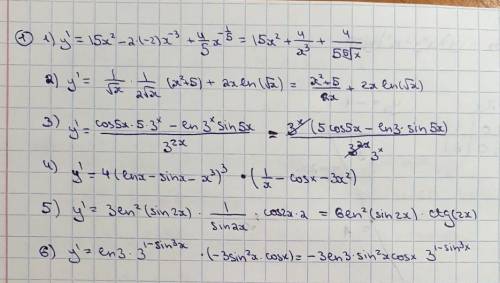 ① 1) y' = 15x² - 2·(-2)x⁻³ + 4/5 x^(-1/5) = 15x² + 4/x³ + 4/(5 ⁵√x)
2) y' = 1/√x · 1/(2√x) (x²+5) + 2x ln(√x) = (x²+5)/(2x) + 2x ln(√x)
3) y' = (cos5x·5·3ˣ - ln3·3ˣ sin5x)/3²ˣ = 3ˣ(5cos5x - ln3·sin5x)/3²ˣ 3ˣ
4) y' = 4(lnx - sinx - x³)³ · (1/x - cosx - 3x²)
5) y' = 3ln²(sin2x) · 1/sin2x · cos2x·2 = 6ln²(sin2x)·ctg(2x)
6) y' = ln3·3^(1-sin³x) · (-3sin²x·cosx) = -3ln3·sin²x cosx 3^(1-sin³x)